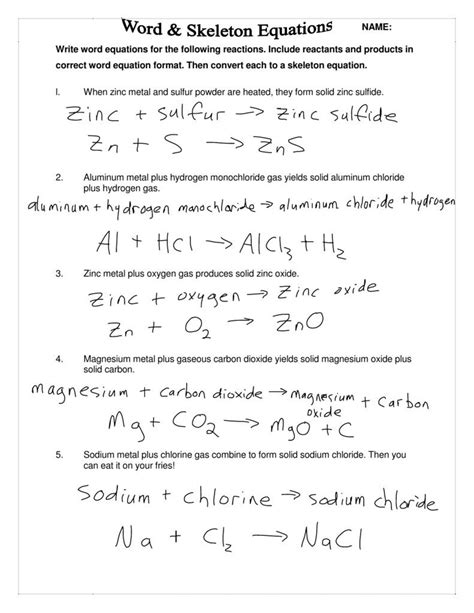 Word & Skeleton Equations NAME:
Write word equations for the following reactions. Include reactants and products in
correct word equation format. Then convert each to a skeleton equation.
I. When zinc metal and sulfur powder are heated, they form solid zinc sulfide.
Zinc + sulfur → zinc sulfide
Zn + S → ZnS
2. Aluminum metal plus hydrogen monochloride gas yields solid aluminum chloride
plus hydrogen gas.
aluminum + hydrogen monochloride → aluminum chloride + hydrogen
Al + HCl → AlCl₃ + H₂
3. Zinc metal plus oxygen gas produces solid zinc oxide.
Zinc + oxygen → Zinc oxide
Zn + O₂ → ZnO
4. Magnesium metal plus gaseous carbon dioxide yields solid magnesium oxide plus
solid carbon.
magnesium + carbon dioxide → magnesium oxide + carbon
Mg + CO₂ → MgO + C
5. Sodium metal plus chlorine gas combine to form solid sodium chloride. Then you
can eat it on your fries!
Sodium + chlorine → sodium chloride
Na + Cl₂ → NaCl